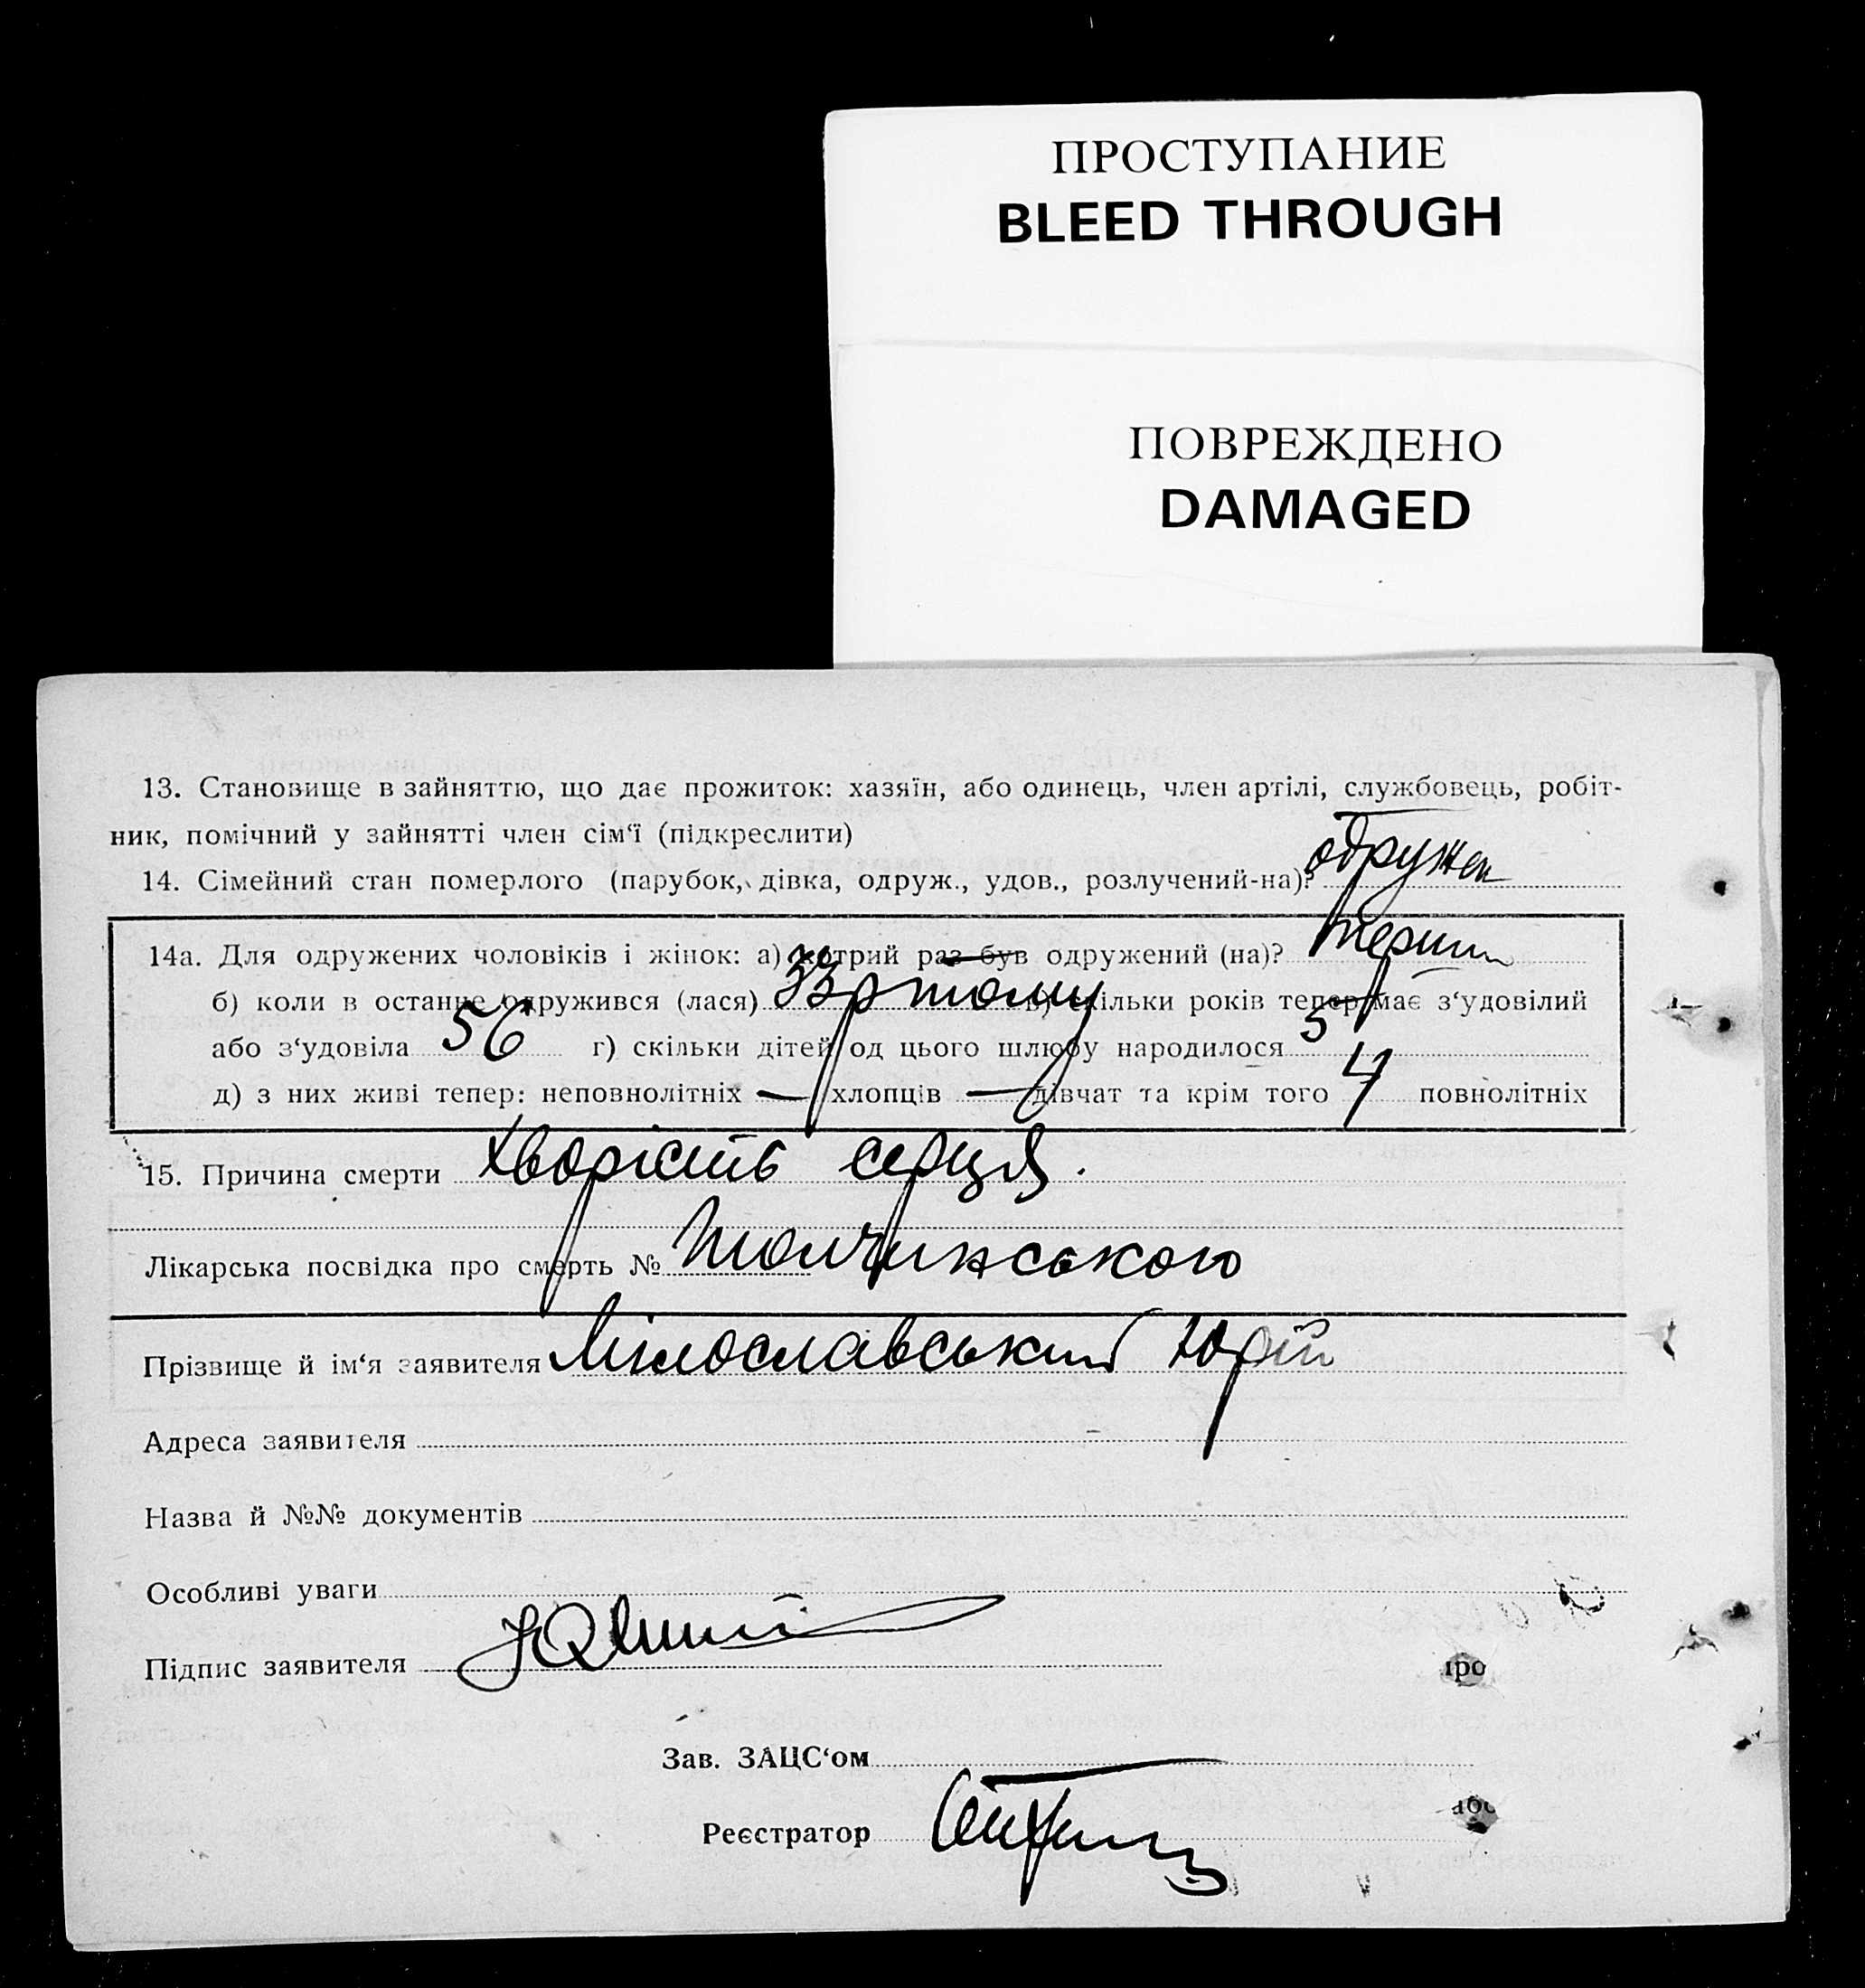 ПРОСТУПАНИЕ
BLEED THROUGH
ПОВРЕЖДЕНО
DAMAGED
13. Становище в зайняттю, що дає прожиток: хазяїн, або одинець, член артілі, службовець, робіт-
ник, помічний у зайнятті член сім‘ї (підкреслити)
14. Сімейний стан померлого (парубок, дівка, одруж., удов., розлучений-на)? одружен
14а. Для одружених чоловіків і жінок: а) котрий раз був одружений (на)? перший
б) коли в останнє одружився (лася) в) скільки років тепер має з‘удовілий
або з‘удовіла 56 г) скільки дітей од цього шлюбу народилося 5
д) з них живі тепер: неповнолітніх — хлопців — дівчат та крім того 4 повнолітніх
15. Причина смерти хворість серця.
Лікарська посвідка про смерть №
Прізвище й ім‘я заявителя Мілославський Юрій
Адреса заявителя
Назва й №№ документів
Особливі уваги
Підпис заявителя
іро
Зав. ЗАЦС‘ом
або
Реєстратор